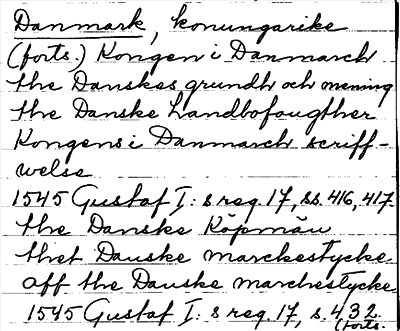 Danmark, konungarike
(forts.) Kongen i Danmarch
the Danskes grundh och mening
the Danske Landbofougther
Kongens i Danmarch scriff-
welse
1545 Gustaf I:s reg. 17, ss. 416, 417.
the Danske Köpmän
thet Danske marckestycke
aff the Danske marchestycke
1545 Gustaf I:s reg. 17, s. 432.
(forts.